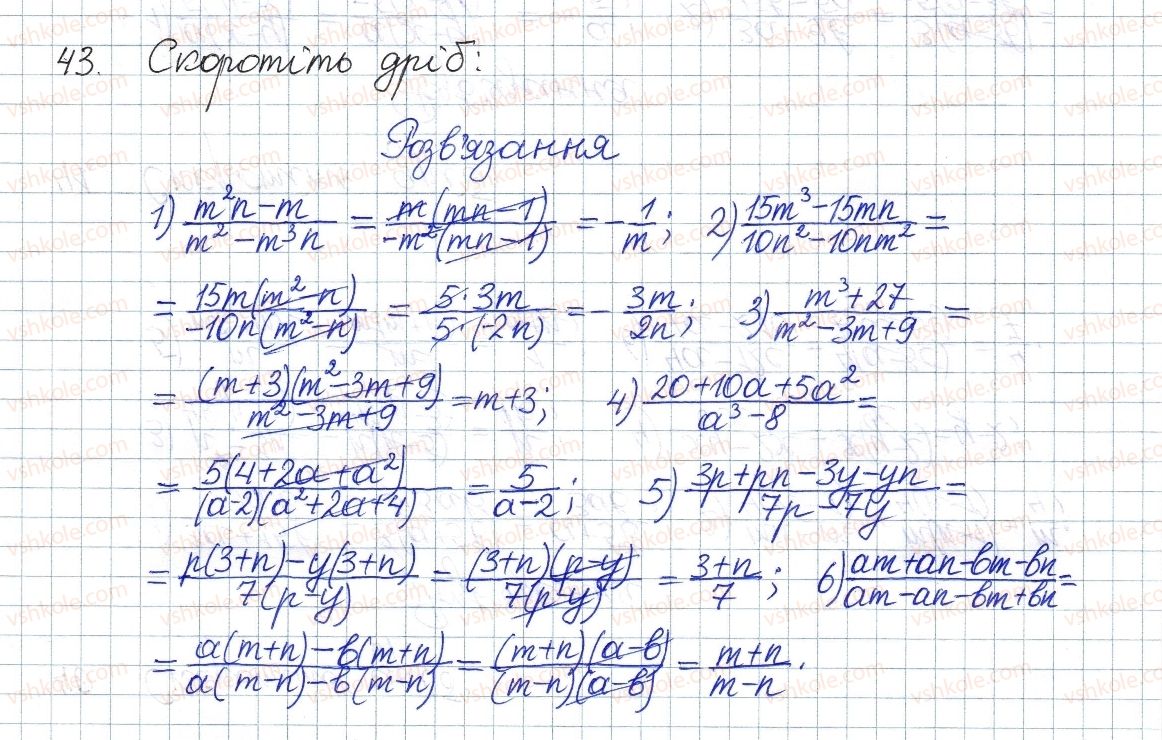 43. Скоротіть дріб:
Розв'язання
1) (m²n-m)/(m²-m³n) = (m(mn-1))/(-m²(mn-1)) = -1/m; 2) (15m³-15mn)/(10n²-10nm²) =
= (15m(m²-n))/(-10n(m²-n)) = (5·3m)/(5·(-2n)) = -3m/2n; 3) (m³+27)/(m²-3m+9) =
= ((m+3)(m²-3m+9))/(m²-3m+9) = m+3; 4) (20+10a+5a²)/(a³-8) =
= (5(4+2a+a²))/((a-2)(a²+2a+4)) = 5/(a-2); 5) (3p+pn-3y-yn)/(7p-7y) =
= (p(3+n)-y(3+n))/(7(p-y)) = ((3+n)(p-y))/(7(p-y)) = (3+n)/7; 6) (am+an-вm-вn)/(am-an-вm+вn) =
= (a(m+n)-в(m+n))/(a(m-n)-в(m-n)) = ((m+n)(a-в))/((m-n)(a-в)) = (m+n)/(m-n).
vshkole.com